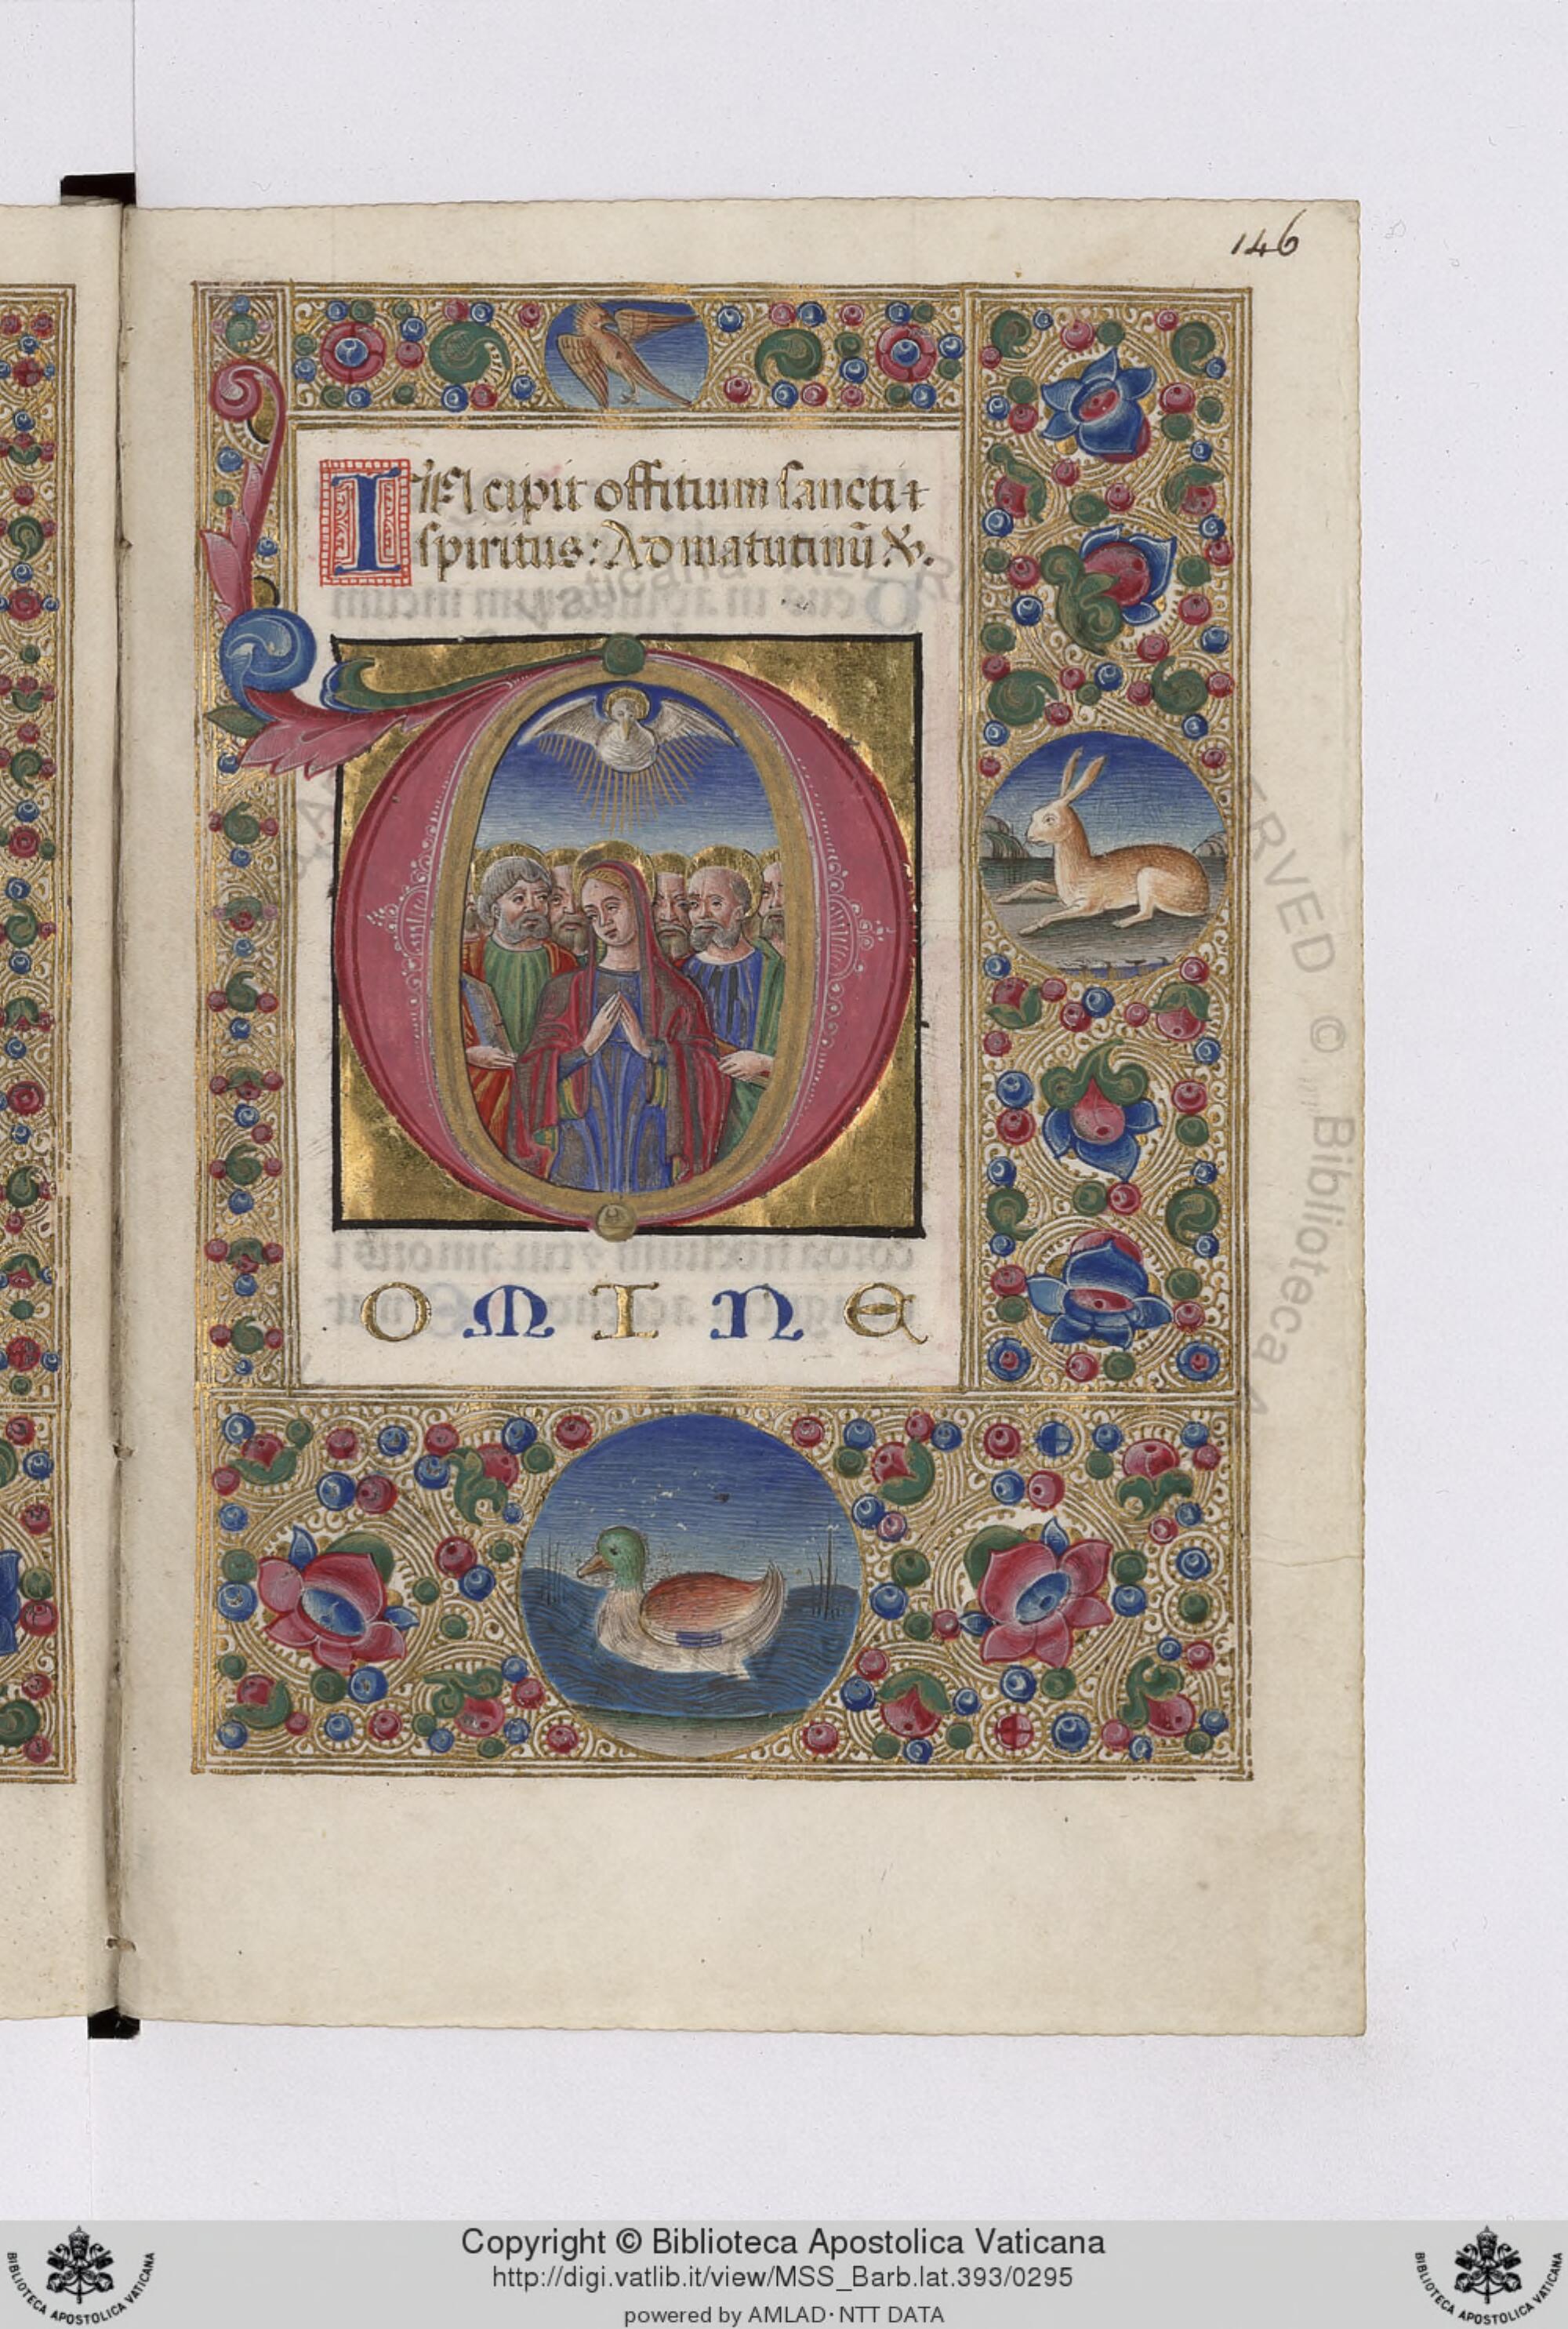 146
INcipit offitium sancti
spiritus: Ad matutinū
D
OMINE
RVED © „ Biblioteca A
Vaticana
Copyright © Biblioteca Apostolica Vaticana
http://digi.vatlib.it/view/MSS_Barb.lat.393/0295
powered by AMLAD·NTT DATA
BIBLIOTECA APOSTOLICA VATICANA
BIBLIOTECA APOSTOLICA VATICANA